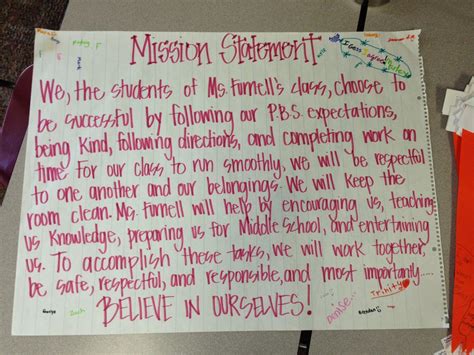 Mission Statement
We, the students of Ms. Furnell's class, choose to
be successful by following our P.B.S. expectations,
being kind, following directions, and completing work on
time. For our class to run smoothly, we will be respectful
to one another and our belongings. We will keep the
room clean. Ms. Furnell will help by encouraging us, teaching
us knowledge, preparing us for Middle School, and entertaining
us. To accomplish these tasks, we will work together,
be safe, respectful, and responsible, and most importantly....
BELIEVE IN OURSELVES!
Trinity
Denise
Zach
Brendan